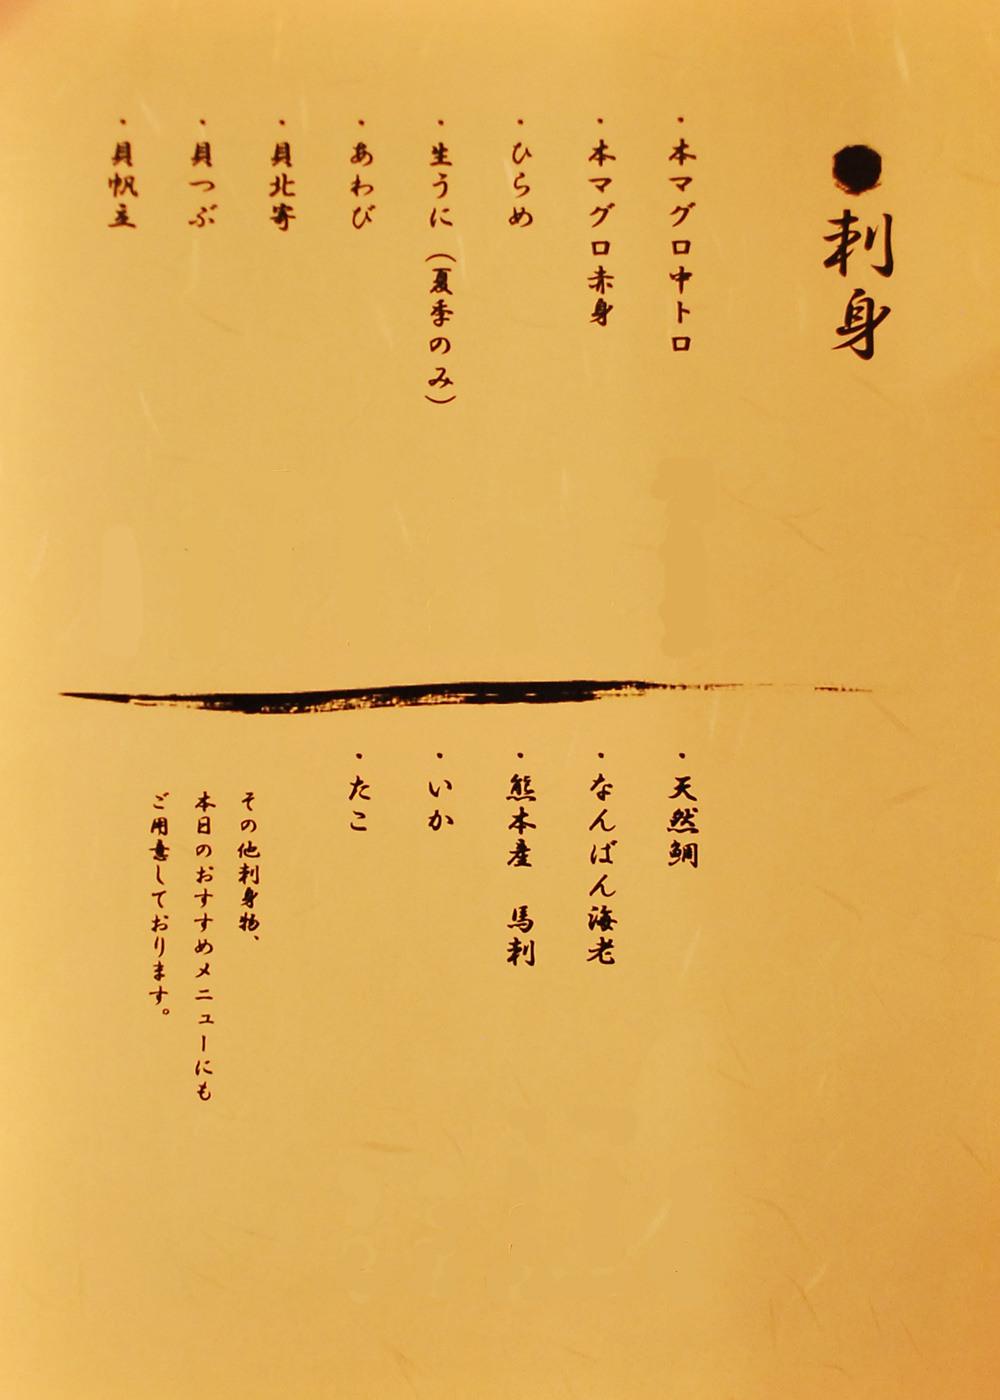 ●刺身
・本マグロ中トロ
・本マグロ赤身
・ひらめ
・生うに(夏季のみ)
・あわび
・貝北寄
・貝つぶ
・貝帆立
・天然鯛
・なんばん海老
・熊本産 馬刺
・いか
・たこ
その他刺身物、
本日のおすすめメニューにも
ご用意しております。